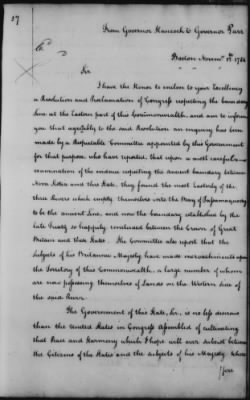 57
From Governor Hancock to Governor Parr
Boston Novemr. 12th 1784
Sir
I have the Honor to enclose to your Excellency
a Resolution and Proclamation of Congress respecting the boundary
line at the Eastern part of this Commonwealth and am to inform
you that agreeably to the said Resolution an enquiry has been
made by a Respectable Committee appointed by this Government
for that purpose who have reported that upon a most careful
examination of the evidence respecting the ancient boundary between
Nova Scotia and this State, they found the most Easterly of the
three Rivers which empty themselves into the Bay of Passamaquoddy
to be the ancient Line, and now the boundary established by the
late Treaty so happily concluded between the Crown of Great
Britain and these States. The Committee also report that the
Subjects of his Britannic Majesty have made encroachments upon
the Territory of this Commonwealth, a large number of whom
are now possessing themselves of Lands on the Western side of
the said River.
The Government of this State, Sir, is no less desirous
than the United States in Congress Assembled of cultivating
that Peace and Harmony which I hope will ever subsist between
the Citizens of the States and the Subjects of his Majesty. Where